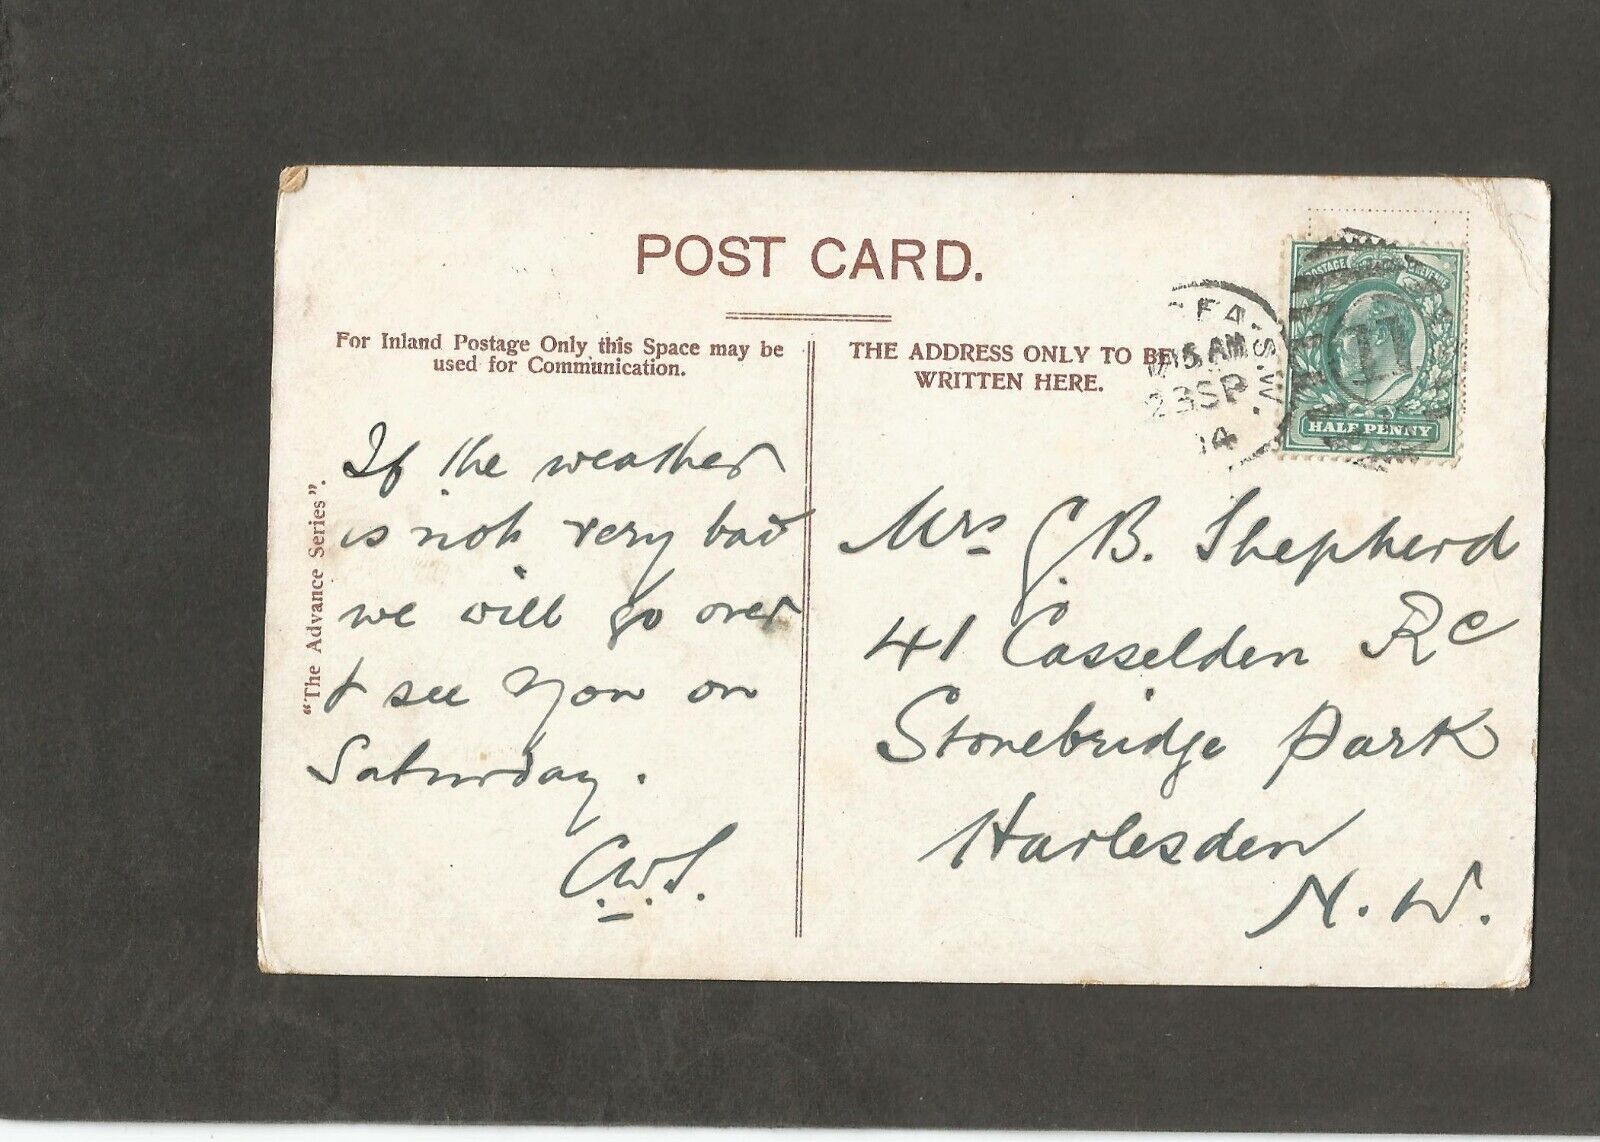 POST CARD.
For Inland Postage Only this Space may be
used for Communication.
THE ADDRESS ONLY TO BE
WRITTEN HERE.
"The Advance Series".
If the weather
is not very bad
we will go over
& see you on
Saturday.
C.W.S.
Mrs C.B. Shepherd
41 Casselden Rd
Stonebridge Park
Harlesden
N.W.
15 AM
23 SP
04
S.W.
11
POSTAGE REVENUE
HALF PENNY